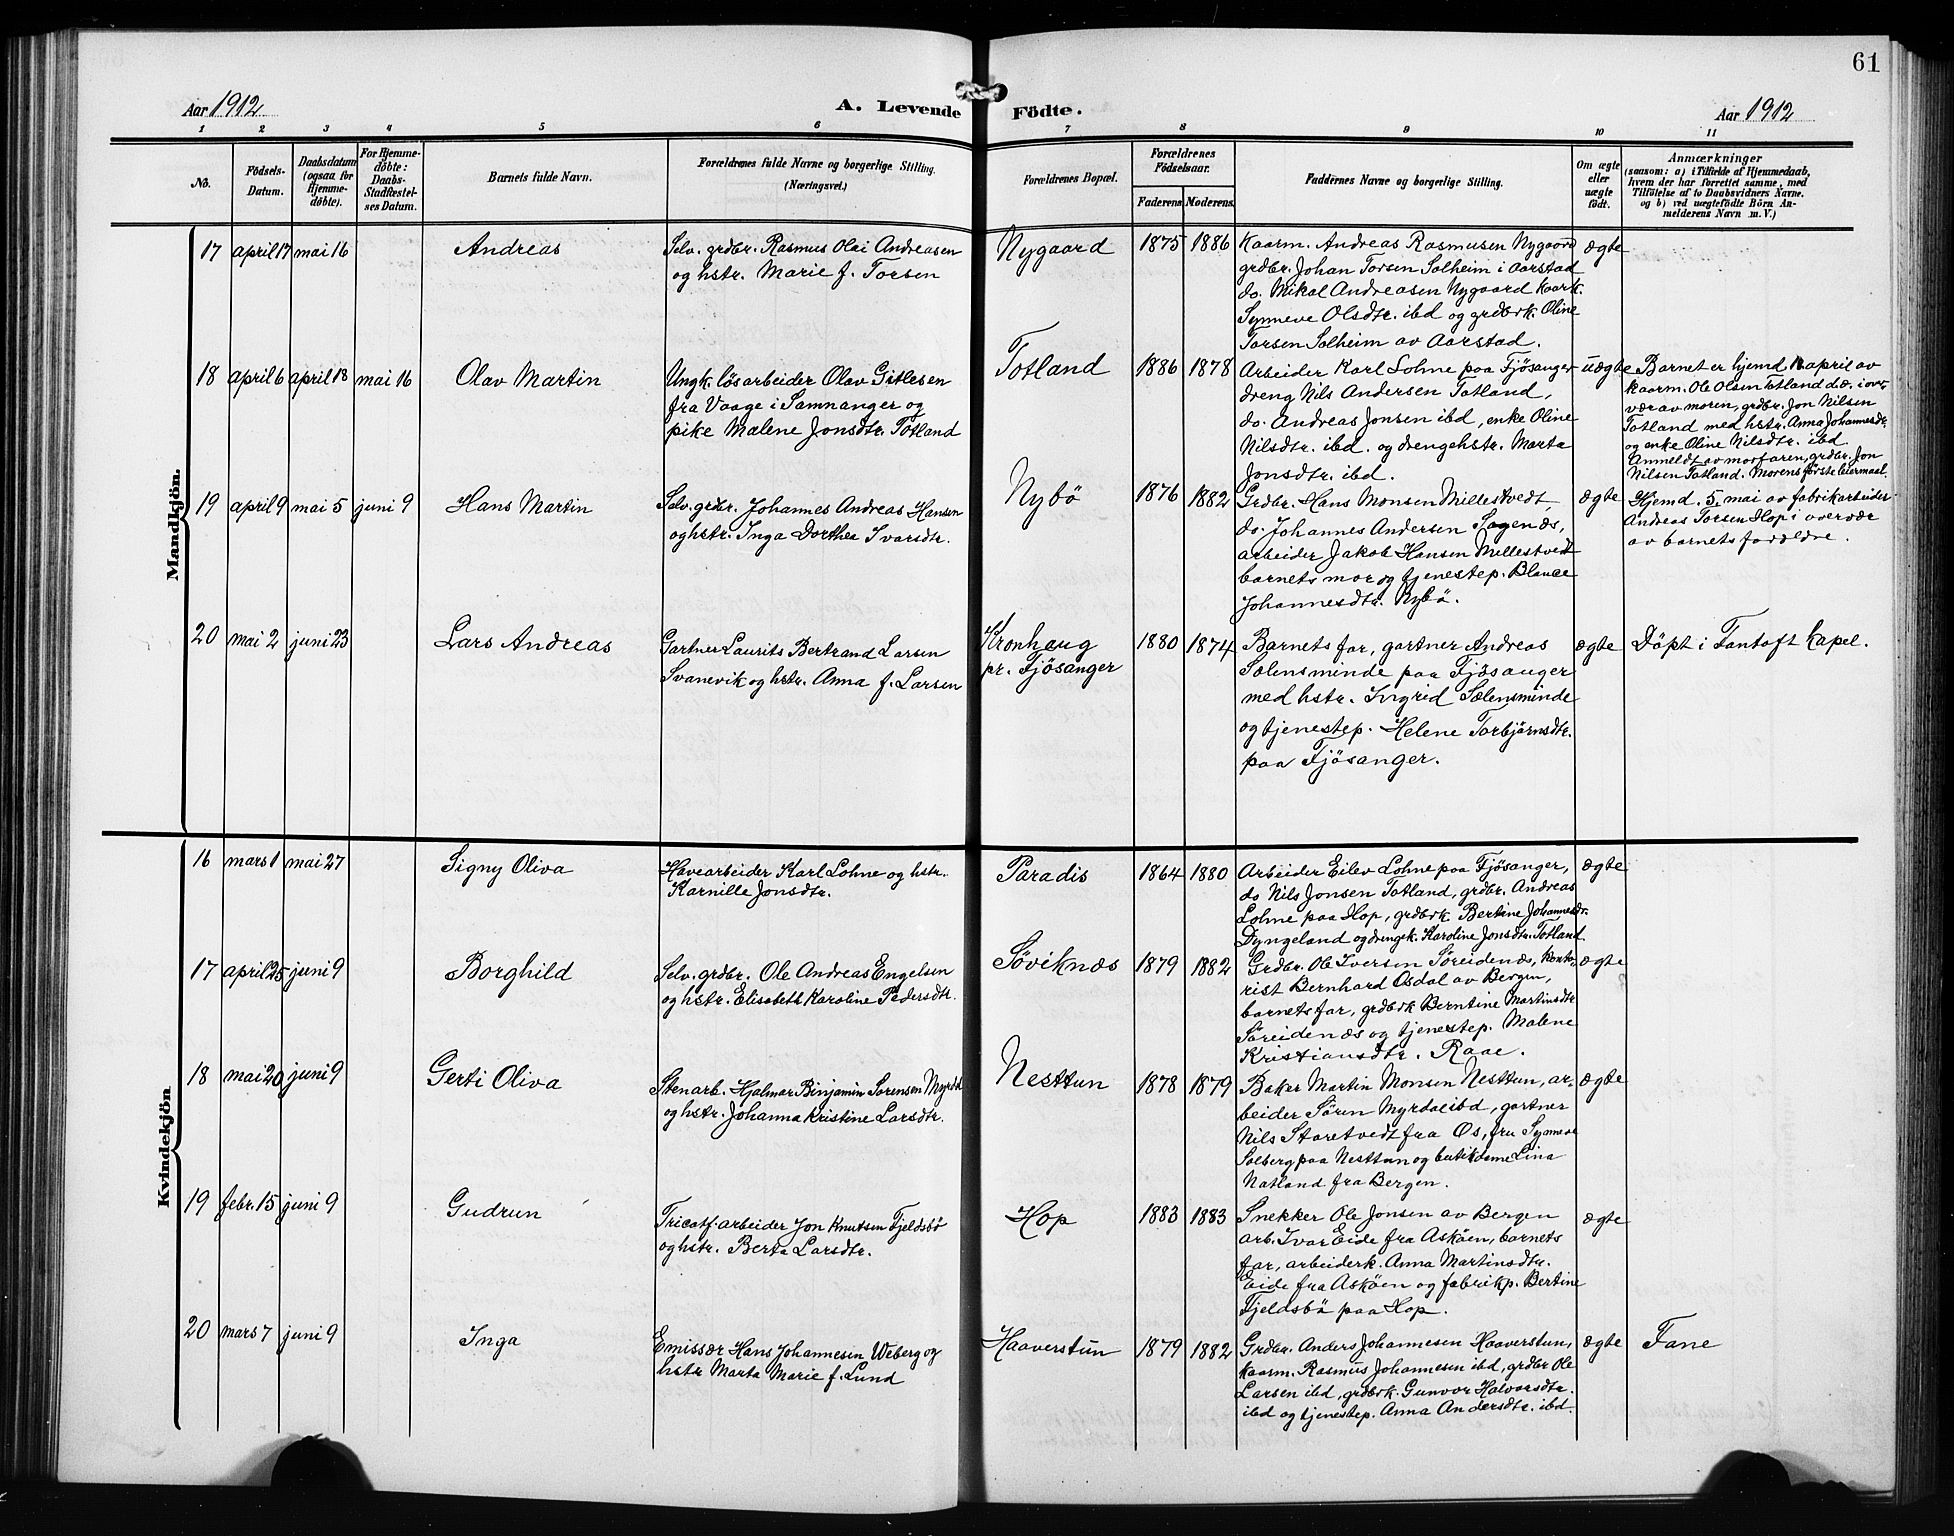 61
Aar 1912
A. Levende Födte.
Aar 1912
1 2 3 4 5 6 7 8 9 10 11
No.
Födsels-
Datum.
Daabsdatum
(ogsaa for
Hjemme-
døbte).
For Hjemme-
døbte:
Daabs-
Stadfæstel-
ses Datum.
Barnets fulde Navn.
Forældrenes fulde Navne og borgerlige Stilling.
(Næringsvei.)
Forældrenes Bopæl.
Forældrenes
Födselsaar.
Faderens Moderens.
Faddernes Navne og borgerlige Stilling.
Om ægte
eller
uægte
født.
Anmærkninger
(saasom: a) i Tilfælde af Hjemmedaab,
hvem der har forrettet samme, med
Tilföielse af to Daabsvidners Navne.
og b) ved uægtefödte Börn An-
melderens Navn m. V.)
Mandkjön.
17 april 17 mai 16
Andreas
Selv. grdbr. Rasmus Olai Andreasen
og hstr. Marie f. Torsen
Nygaard
1875 1886
Kaarm. Andreas Rasmusen Nygaard
grdbr. Johan Torsen Solheim i Aarstad
do. Mikal Andreasen Nygaard kaark.
Synneve Olsdtr. ibd og grdbrk. Oline
Torsen Solheim av Aarstad.
ægte
18 april 6 april 18 mai 16
Olav Martin
Ungk. lösarbeider Olav Gitlesen
fra Vaage i Samnanger og
pike Malene Jonsdtr. Totland
Totland
1886 1878
Arbeider Karl Lohne paa Fjösanger
dreng Nils Andersen Totland,
do. Andreas Jonsen ibd, enke Oline
Nilsdtr. ibd. og drengehstr. Marta
Jonsdtr. ibd.
uægte
Barnet er hjemd. april av
kaarm. Ole Olsen Totland d.æ. i over-
vær av moren, grdbr. Jon Nilsen
Totland med hstr. Anna Johannesdr.
og enke Oline Nilsdtr. ibd.
Anmeldt av morfaren, grdbr. Jon
Nilsen Totland. Morens förste leiermaal.
19 april 9 mai 5 juni 9
Hans Martin
Selv. grdbr. Johannes Andreas Hansen
og hstr. Inga Dorthea Ivarsdtr.
Nybö
1876 1882
Grdbr. Hans Monsen Millestvedt,
do. Johannes Andersen Sagenæs,
arbeider Jakob Hansen Millestvedt
barnets mor og tjenestep.
Johannesdtr. Nybö.
ægte
Hjemd. 5. mai av fabrikarbeider
Andreas Torsen Hop i overvær
av barnets forældre.
20 mai 2 juni 23
Lars Andreas
Gartner Laurits Bertrand Larsen
Svanevik og hstr. Anna f. Larsen
Kronhaug
pr. Fjösanger
1880 1874
Barnets far, gartner Andreas
Sælensminde paa Fjösanger
med hstr. Ingrid Sælensminde
og tjenestep. Helene Torbjørnsdtr.
paa Fjösanger.
ægte
Döpt i Fantoft kapel.
Kvindekjön
16 mars 1 mai 27
Signy Oliva
Havearbeider Karl Lohne og hstr.
Karnille Jonsdtr.
Paradis
1864 1880
Arbeider Eilev Lohne paa Fjösanger,
do Nils Jonsen Totland, grdbr. Andreas
Lohne paa Hop, grdbrk Bertine Johannesdr.
Dyngeland og drengek. Karoline Jonsdtr. Totland
ægte
17 april 25 juni 9
Borghild
Selv. grdbr. Ole Andreas Engelsen
og hstr. Elisabeth Karoline Pedersdtr.
Söviknæs
1879 1882
Grdbr. Ole Iversen Söreidenæs, konto-
rist Bernhard Osdal av Bergen,
barnets far, grdbrk Berntine Martinsdtr
Söreidenæs og tjenestep. Malene
Kristiansdtr. Raae.
ægte
18 mai 20 juni 9
Gerti Oliva
Stenarb. Hjalmar Binjamin Sørensen Myrdal
og hstr. Johanna Kristine Larsdtr.
Nesttun
1878 1879
Baker Martin Monsen Nesttun, ar-
beider Sören Myrdal ibd, gartner
Nils Staretvedt fra Os, fru Synneve
Solberg paa Nesttun og butikdame Lina
Natland fra Bergen.
ægte
19 febr. 15 juni 9
Gudrun
Tricotf. arbeider Jon Knutsen Fjeldsbö
og hstr. Berta Larsdtr.
Hop
1883 1883
Snekker Ole Jonsen av Bergen
arb. Ivar Eide fra Asköen, barnets
far, arbeiderk. Anna Martinsdtr.
Eide fra Asköen og fabrikp. Bertine
Fjeldsbö paa Hop.
ægte
20 mars 7 juni 9
Inga
Emissær Hans Johannesen Weberg og
hstr Marta Marie f. Lund
Haaverstun
1879 1882
Grdbr. Anders Johannesen Haaverstun,
kaarm. Rasmus Johannesen ibd, grdbr Ole
Larsen ibd, grdbrk. Gunvor Halvorsdtr.
ibd og tjenestep. Anna Andersdtr. ibd.
ægte
Fane